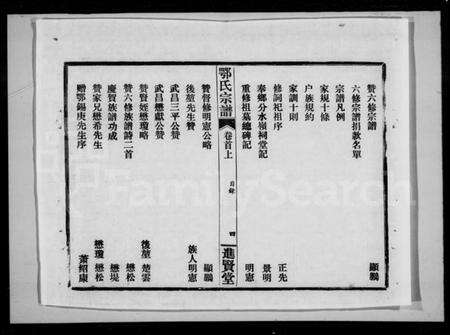 贊六修宗譜 顯鵬
六修宗譜捐款名單
宗譜凡例
家規十條
户族規約
家訓十則
修詞祀祖序 正先
奉鄉分水嶺祠堂記 景明
重修祖墓總碑記 明憲
鄂氏宗譜 卷首上 目錄 四 進賢堂
贊督修明憲公略 顯鵬
後堃先生贊 族人明憲
武昌三平公贊
武昌懋獻公贊
贊賢姪懋瓊略 後堃 楚雲
贊六修族譜詩二首 懋松
慶賀族譜功成 懋堤
贊家兄懋希先生 懋瓊 懋松
贈鄂錫庚先生序 蕭紹康
FamilySearch